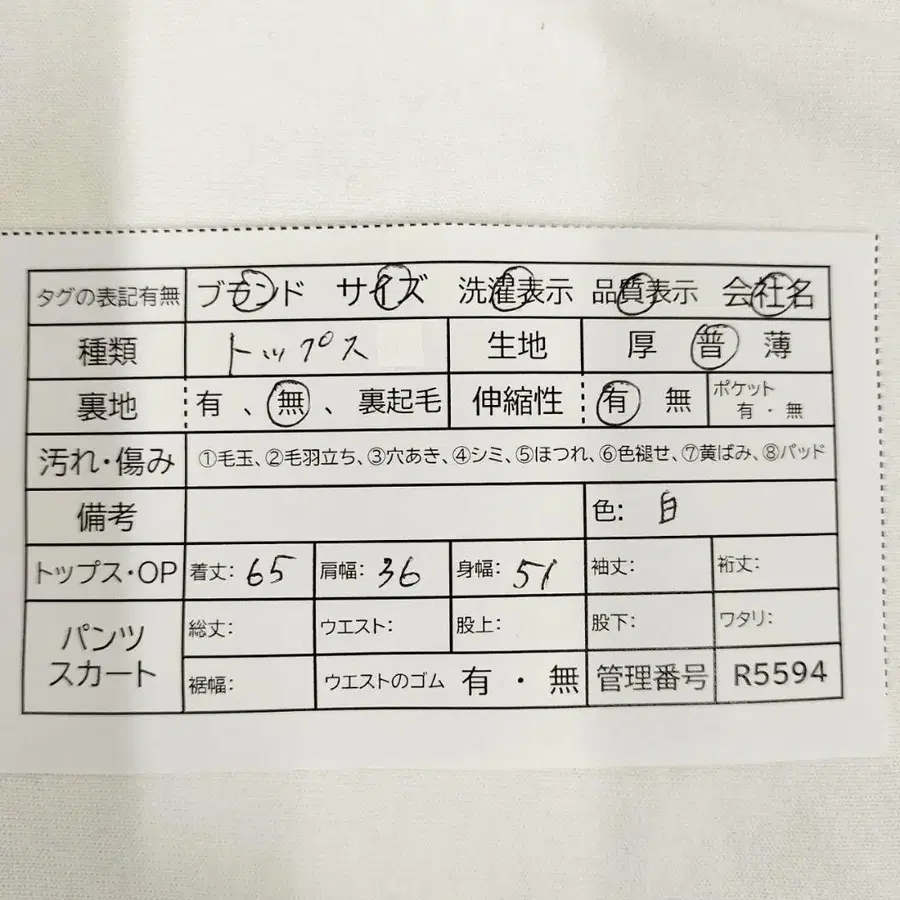 タグの表記有無 ブランド サイズ 洗濯表示 品質表示 会社名
種類 トップス 生地 厚 普 薄
裏地 有 、 無 、 裏起毛 伸縮性 有 無 ポケット 有 ・ 無
汚れ・傷み ①毛玉、②毛羽立ち、③穴あき、④シミ、⑤ほつれ、⑥色褪せ、⑦黄ばみ、⑧パッド
備考 色: 白
トップス・OP 着丈: 65 肩幅: 36 身幅: 51 袖丈: 裄丈:
パンツ スカート 総丈: ウエスト: 股上: 股下: ワタリ:
裾幅: ウエストのゴム 有 ・ 無 管理番号 R5594